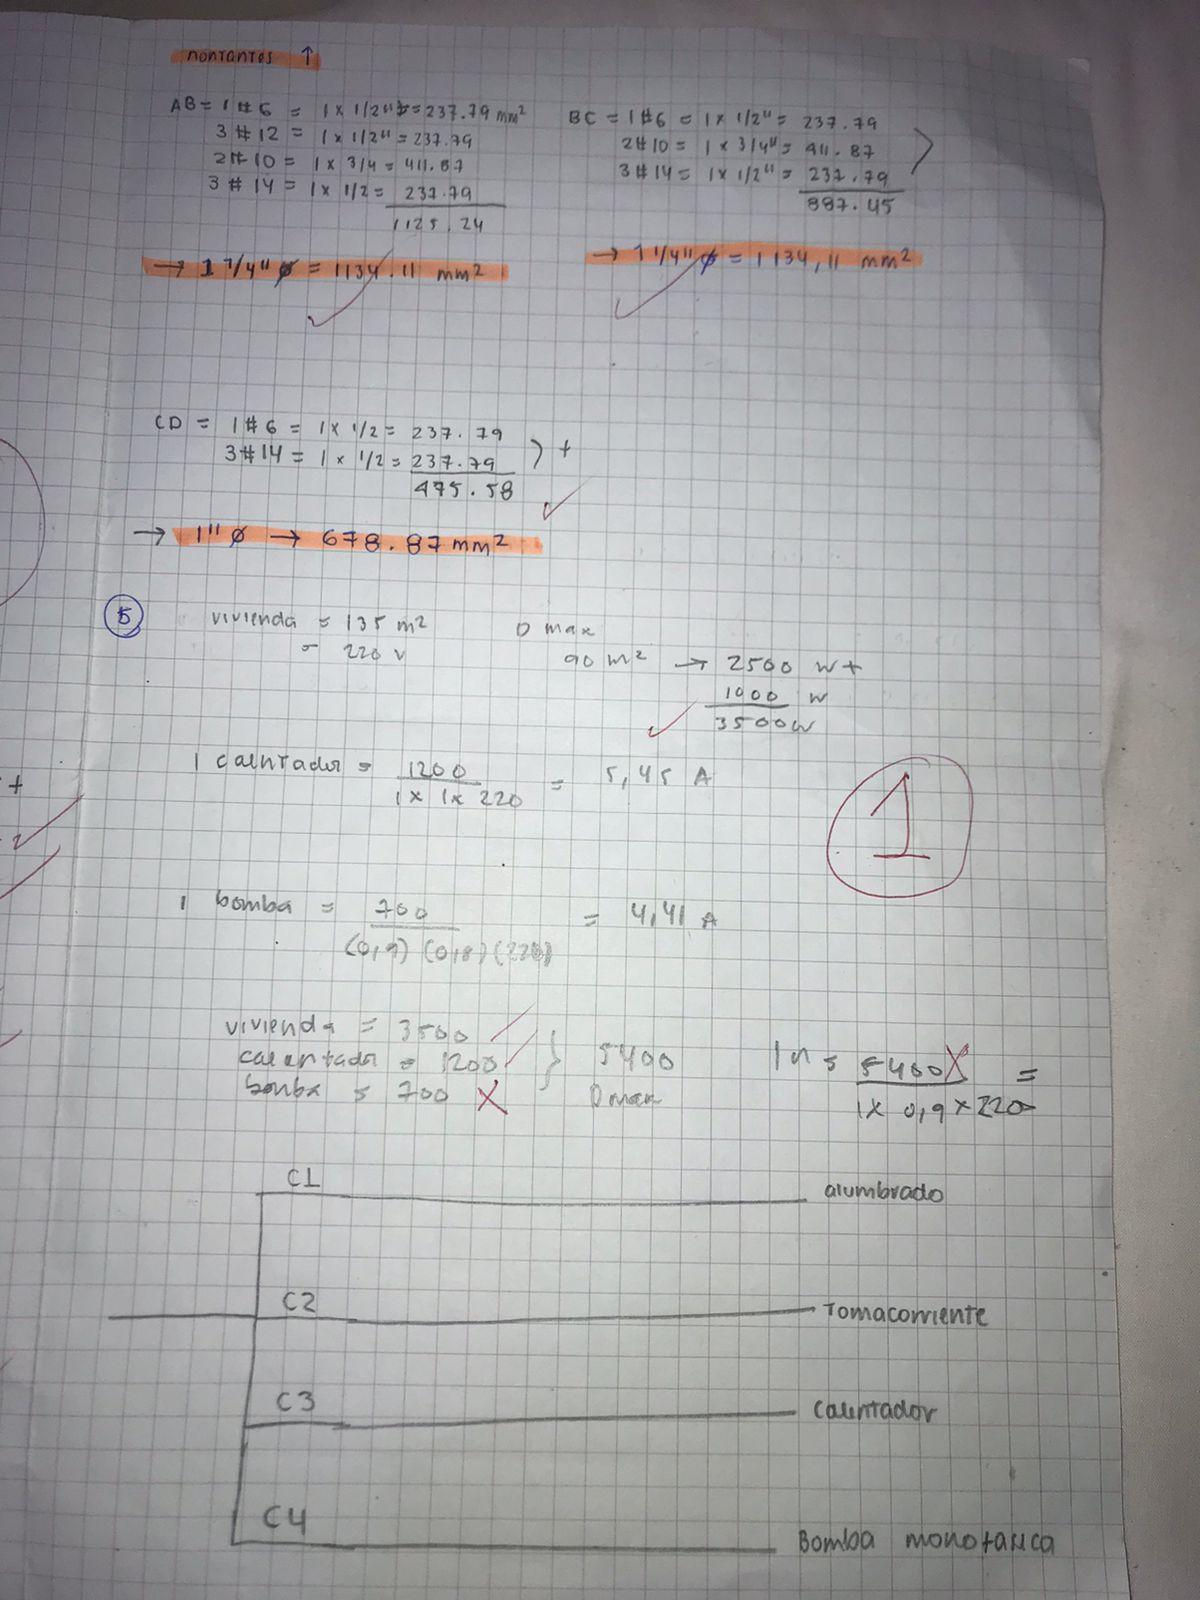 montantes ↑
AB = 1#6 = 1 x 1/2" = 237.79 mm²
3#12 = 1 x 1/2" = 237.79
2#10 = 1 x 3/4 = 411.87
3#14 = 1 x 1/2 = 237.79
1125.24
→ 1 1/4" ø = 1134.11 mm²
BC = 1#6 = 1 x 1/2" = 237.79
2#10 = 1 x 3/4" = 411.87
3#14 = 1 x 1/2" = 237.79
887.45
→ 1 1/4" ø = 1134,11 mm²
CD = 1#6 = 1 x 1/2 = 237.79
3#14 = 1 x 1/2 = 237.79 +
475.58
→ 1" ø → 678.87 mm²
5
vivienda = 135 m²
= 220 v
D max
90 m² → 2500 w +
1000 w
3500w
1 calentador = 1200
1 x 1 x 220
= 5,45 A
1
1 bomba = 700
(0,9) (0,8) (220)
= 4,41 A
vivienda = 3500
calentador = 1200
bomba = 700 X
5400
Dmax
In = 5400 X =
1 x 0,9 x 220
C1 alumbrado
C2 Tomacorriente
C3 calentador
C4 Bomba monofasica
+